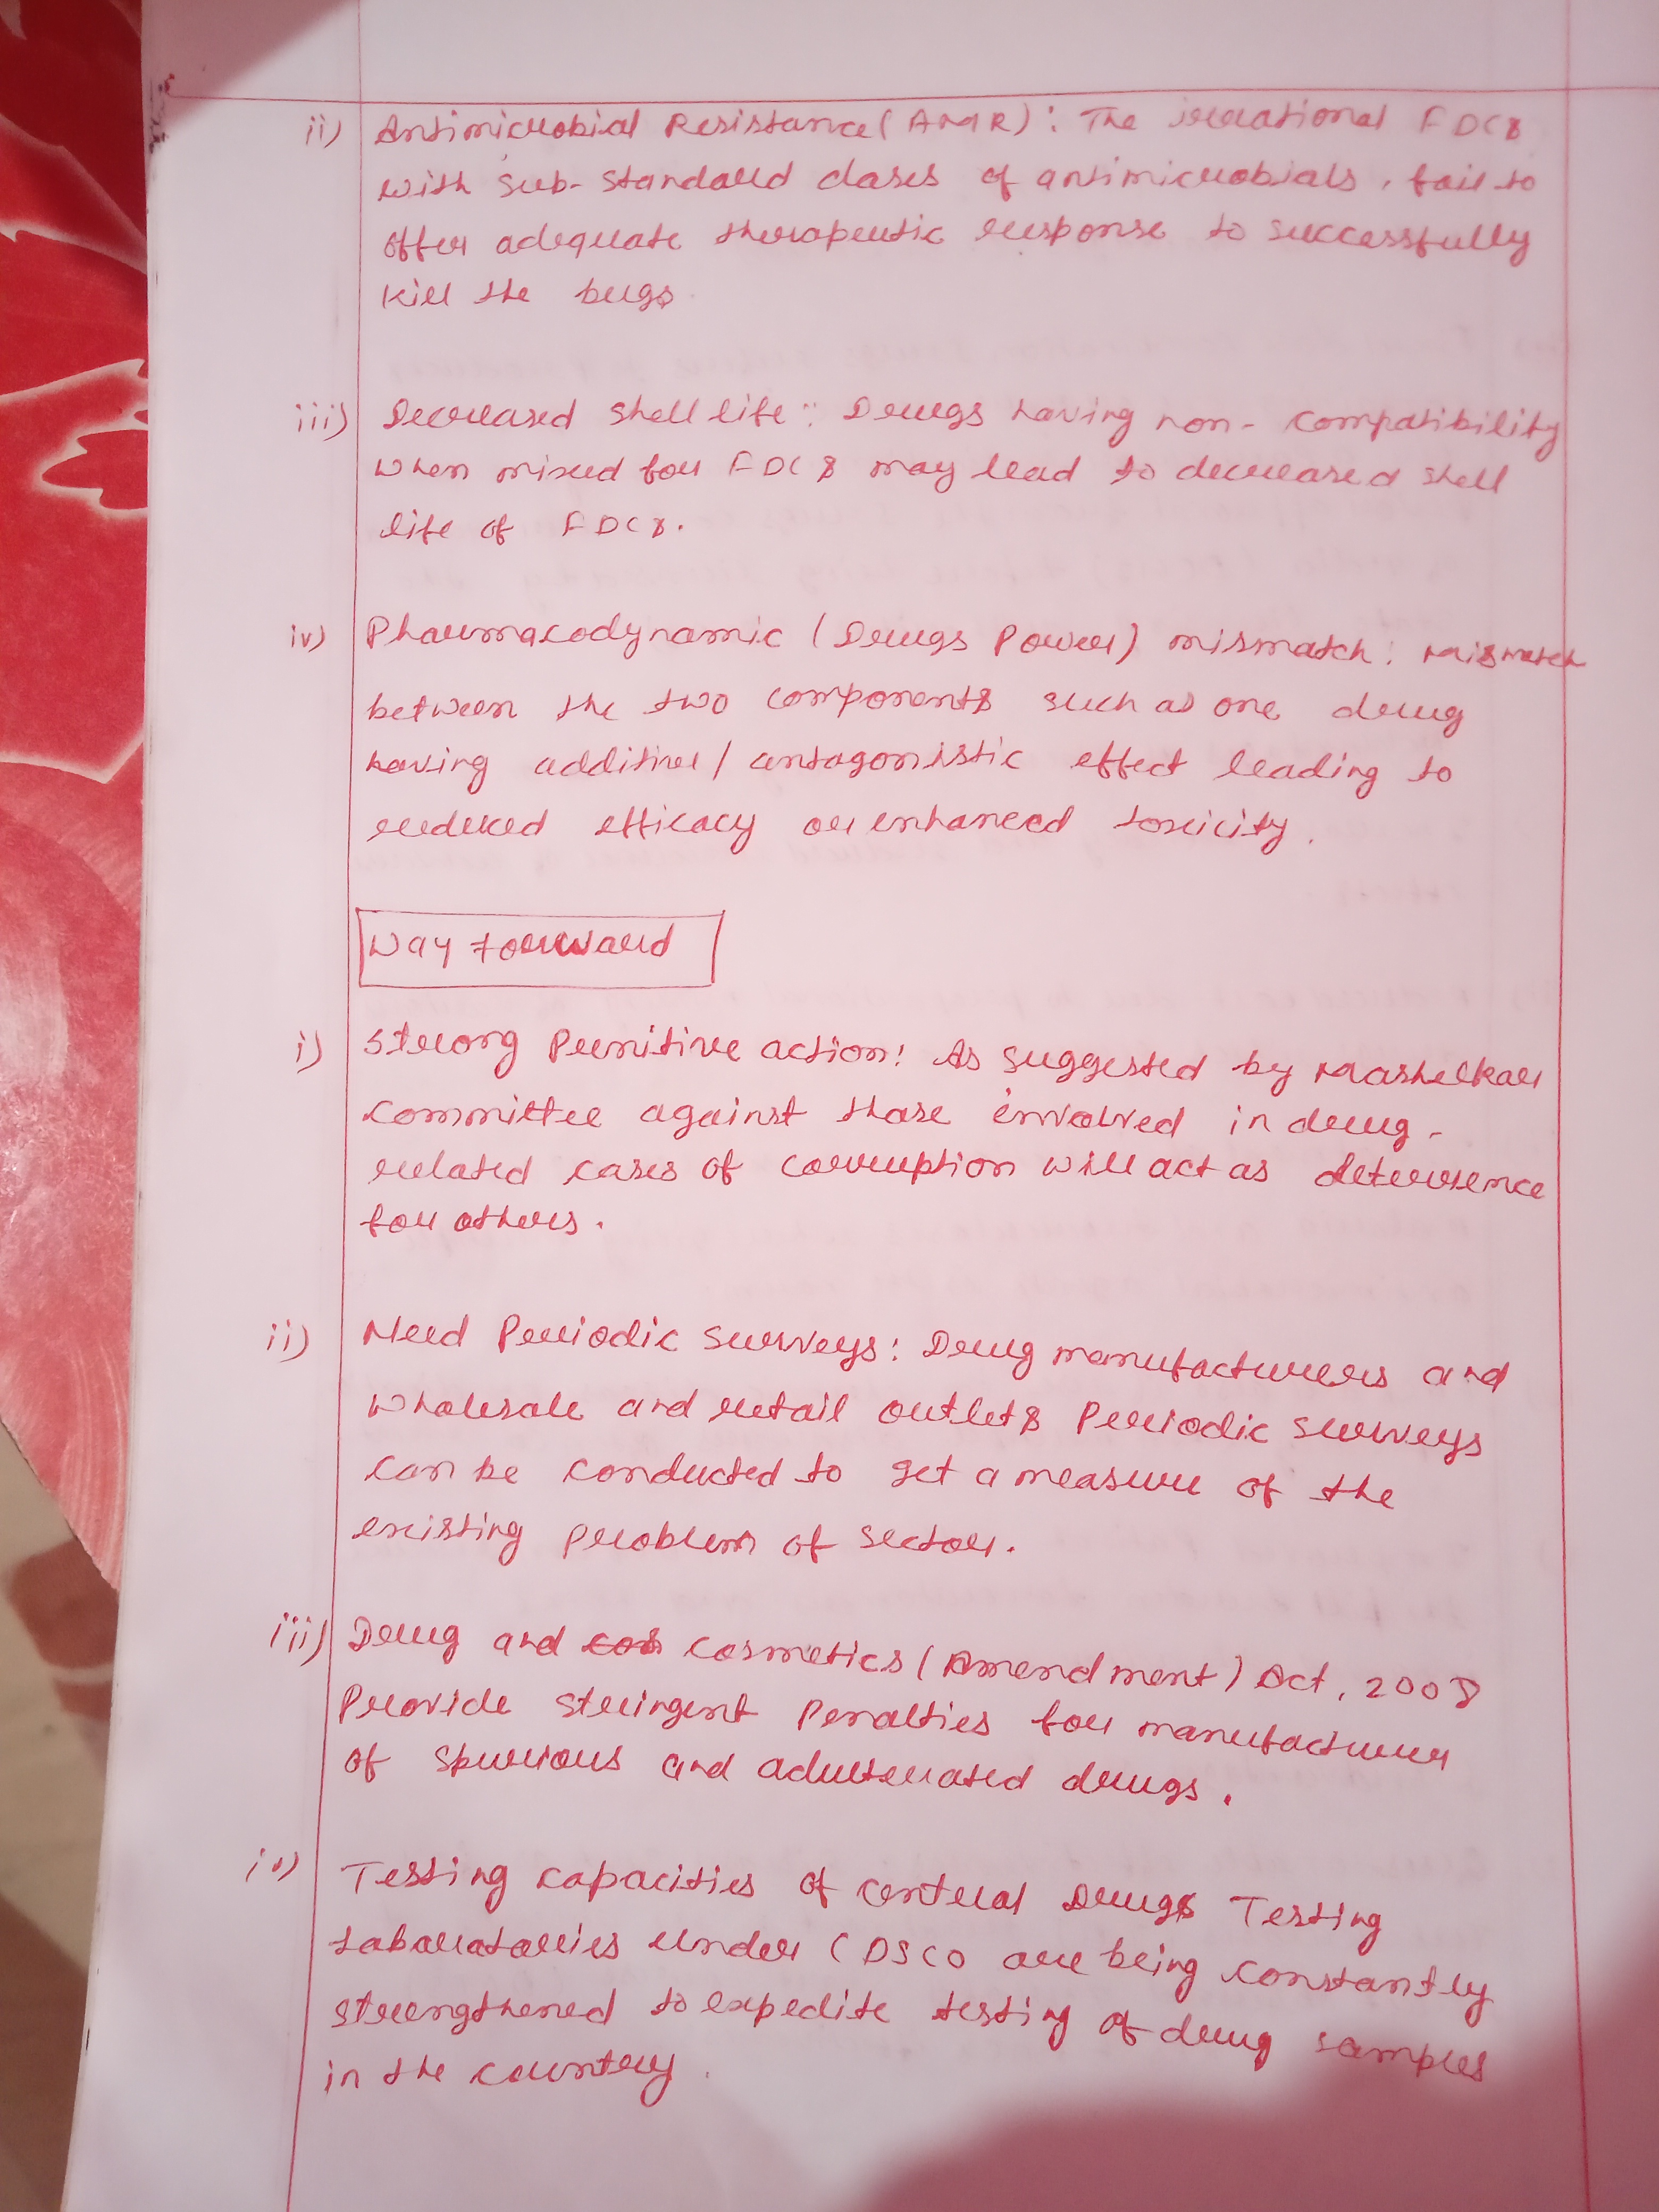 ii) Antimicrobial Resistance (AMR) : The irrational FDCs
with sub-standard doses of antimicrobials, fail to
offer adequate therapeutic response to successfully
kill the bugs.
iii) Decreased shell life : Drugs having non-compatibility
when mixed for FDCs may lead to decreased shell
life of FDCs.
iv) Pharmacodynamic (Drugs Power) mismatch : Mismatch
between the two components such as one drug
having additive / antagonistic effect leading to
reduced efficacy or enhanced toxicity.
Way forward
i) Strong Punitive action : As suggested by Mashelkar
committee against those involved in drug-
related cases of corruption will act as deterrence
for others.
ii) Need Periodic surveys : Drug manufacturers and
wholesale and retail outlets Periodic surveys
can be conducted to get a measure of the
existing problem of sector.
iii) Drug and Cosmetics (Amendment) Act, 2008
Provide stringent Penalties for manufacturer
of spurious and adulterated drugs.
iv) Testing capacities of central Drugs Testing
Laboratories under CDSCO are being constantly
strengthened to expedite testing of drug samples
in the country.